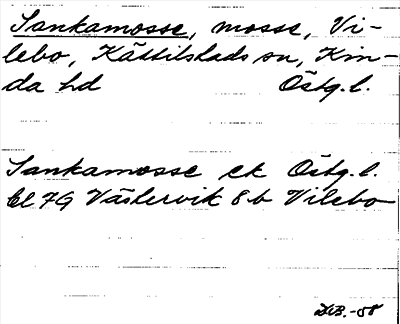 Sankamosse, mosse, Vi-
lebo, Kättilstads sn, Kin-
da hd Östg.l.
Sankamosse ek Östg.l.
bl 7G Västervik 8b Vilebo
-58